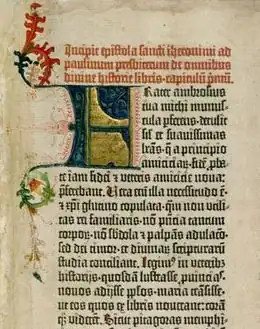 Incipit epistola sancti iheronimi ad
paulinum presbiterum de omnibus
divine historie libris. capitulū pmū.
Frater ambrosius
tua michi munus-
cula pferens. detulit
sil et suavissimas
lras. q̄ a principio
amiciciaꝝ. fidē pba-
te iam fidei ⁊ veteris amicicie nova:
pferebant. Vera eni illa necessitudo ē.
⁊ xp̄i glutino copulata. qm non vili-
tas rei familiaris. nō pntia tantum
corpoꝝ. nō sbdola ⁊ palpans adulacō:
sed dei timor. et divinaꝝ scripturaꝝ
studia conciliant. Legim⁹ in veterib⁹
historijs. quosdā lustrasse puincias.
novos adijsse plos. maria trāsisse.
ut eos quos ex libris noverant: corā
q̄ꝫ viderēt. Sicut pitagoras memphi-